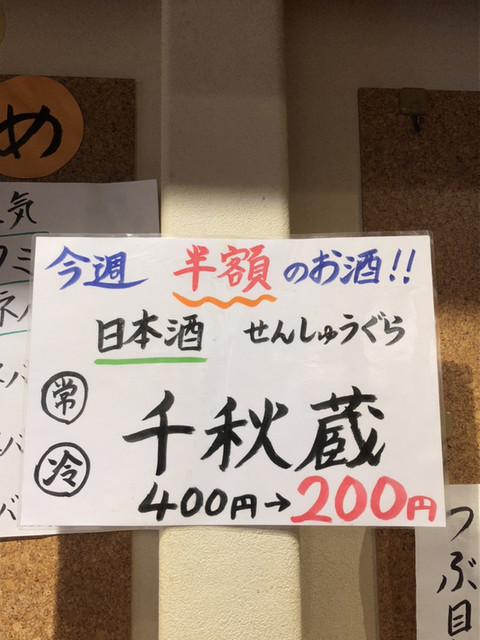 め
気
タミ
ネバ
今週 半額のお酒!!
日本酒 せんしゅうぐら
常
冷
千秋蔵
400円→200円
つぶ目